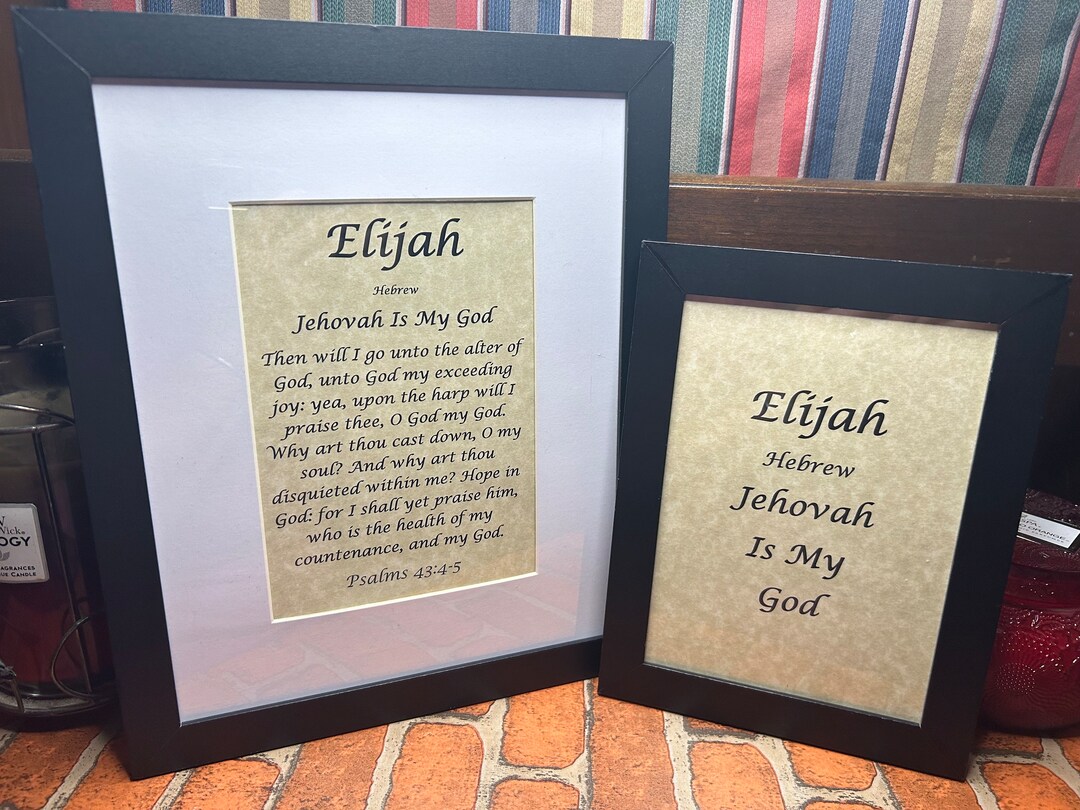 Elijah
Hebrew
Jehovah Is My God
Then will I go unto the alter of
God, unto God my exceeding
joy: yea, upon the harp will I
praise thee, O God my God.
Why art thou cast down, O my
soul? And why art thou
disquieted within me? Hope in
God: for I shall yet praise him,
who is the health of my
countenance, and my God.
Psalms 43:4-5
Elijah
Hebrew
Jehovah
Is My
God
OGY
UE CANDLE
SPA
ORANGE